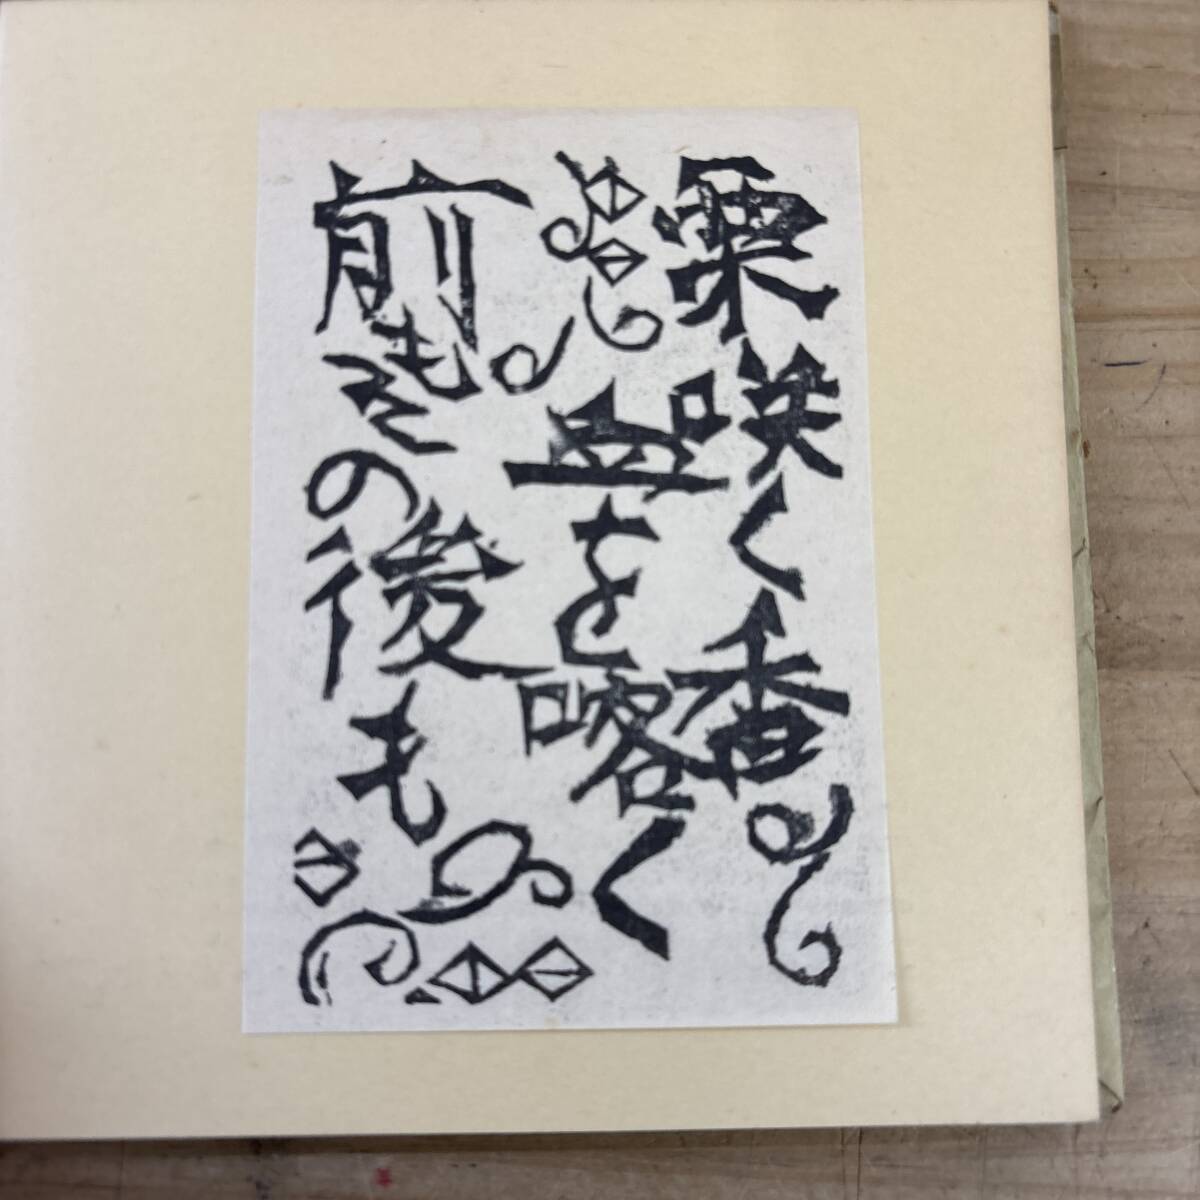 栗咲く香
血を喀く
前もその後も